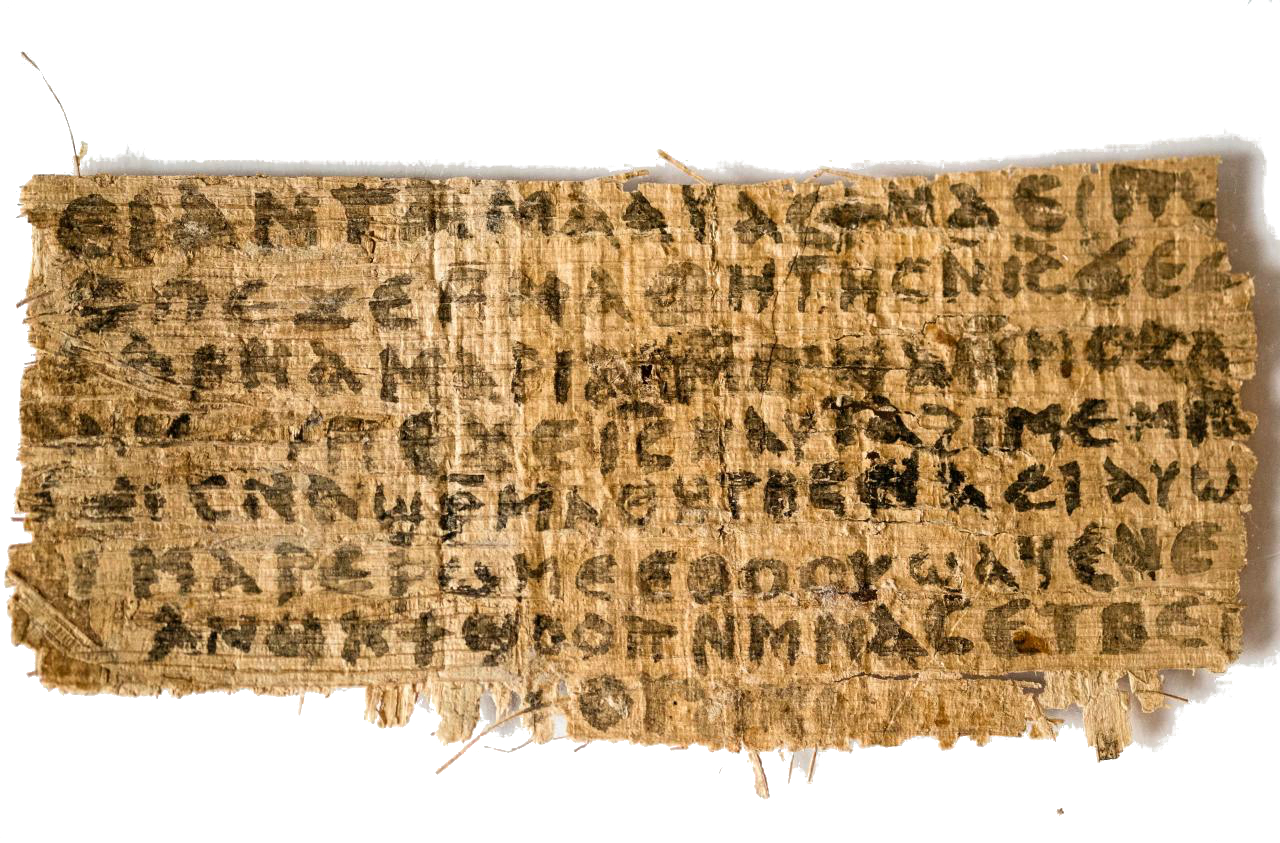 ⲉⲓ ⲁⲛ ⲧⲁⲙⲁⲁⲩ ⲁⲥϯ ⲛⲁⲉⲓ ⲡ
ⲥ ⲡⲉϫⲉ ⲙⲙⲁⲑⲏⲧⲏⲥ ⲛⲓ̅ⲥ̅ ϫⲉ ⲥ
ⲁⲣⲛⲁ ⲙⲁⲣⲓⲁⲙ
ⲡⲉϫⲉ ⲓ̅ⲥ̅ ⲛⲁⲩ ⲧⲁϩⲓⲙⲉ ⲙⲛ
ⲥⲛⲁϣⲣ̅ⲙⲁⲑⲏⲧⲏⲥ ⲛⲁⲉⲓ ⲁⲩⲱ
ⲓ ⲙⲁⲣⲉⲣⲱⲙⲉ ⲉⲑⲟⲟⲩ ϣⲁϥⲉ ⲛⲉ
ⲁⲛⲟⲕ ϯϣⲟⲟⲡ ⲛⲙⲙⲁⲥ ⲉⲧⲃⲉ